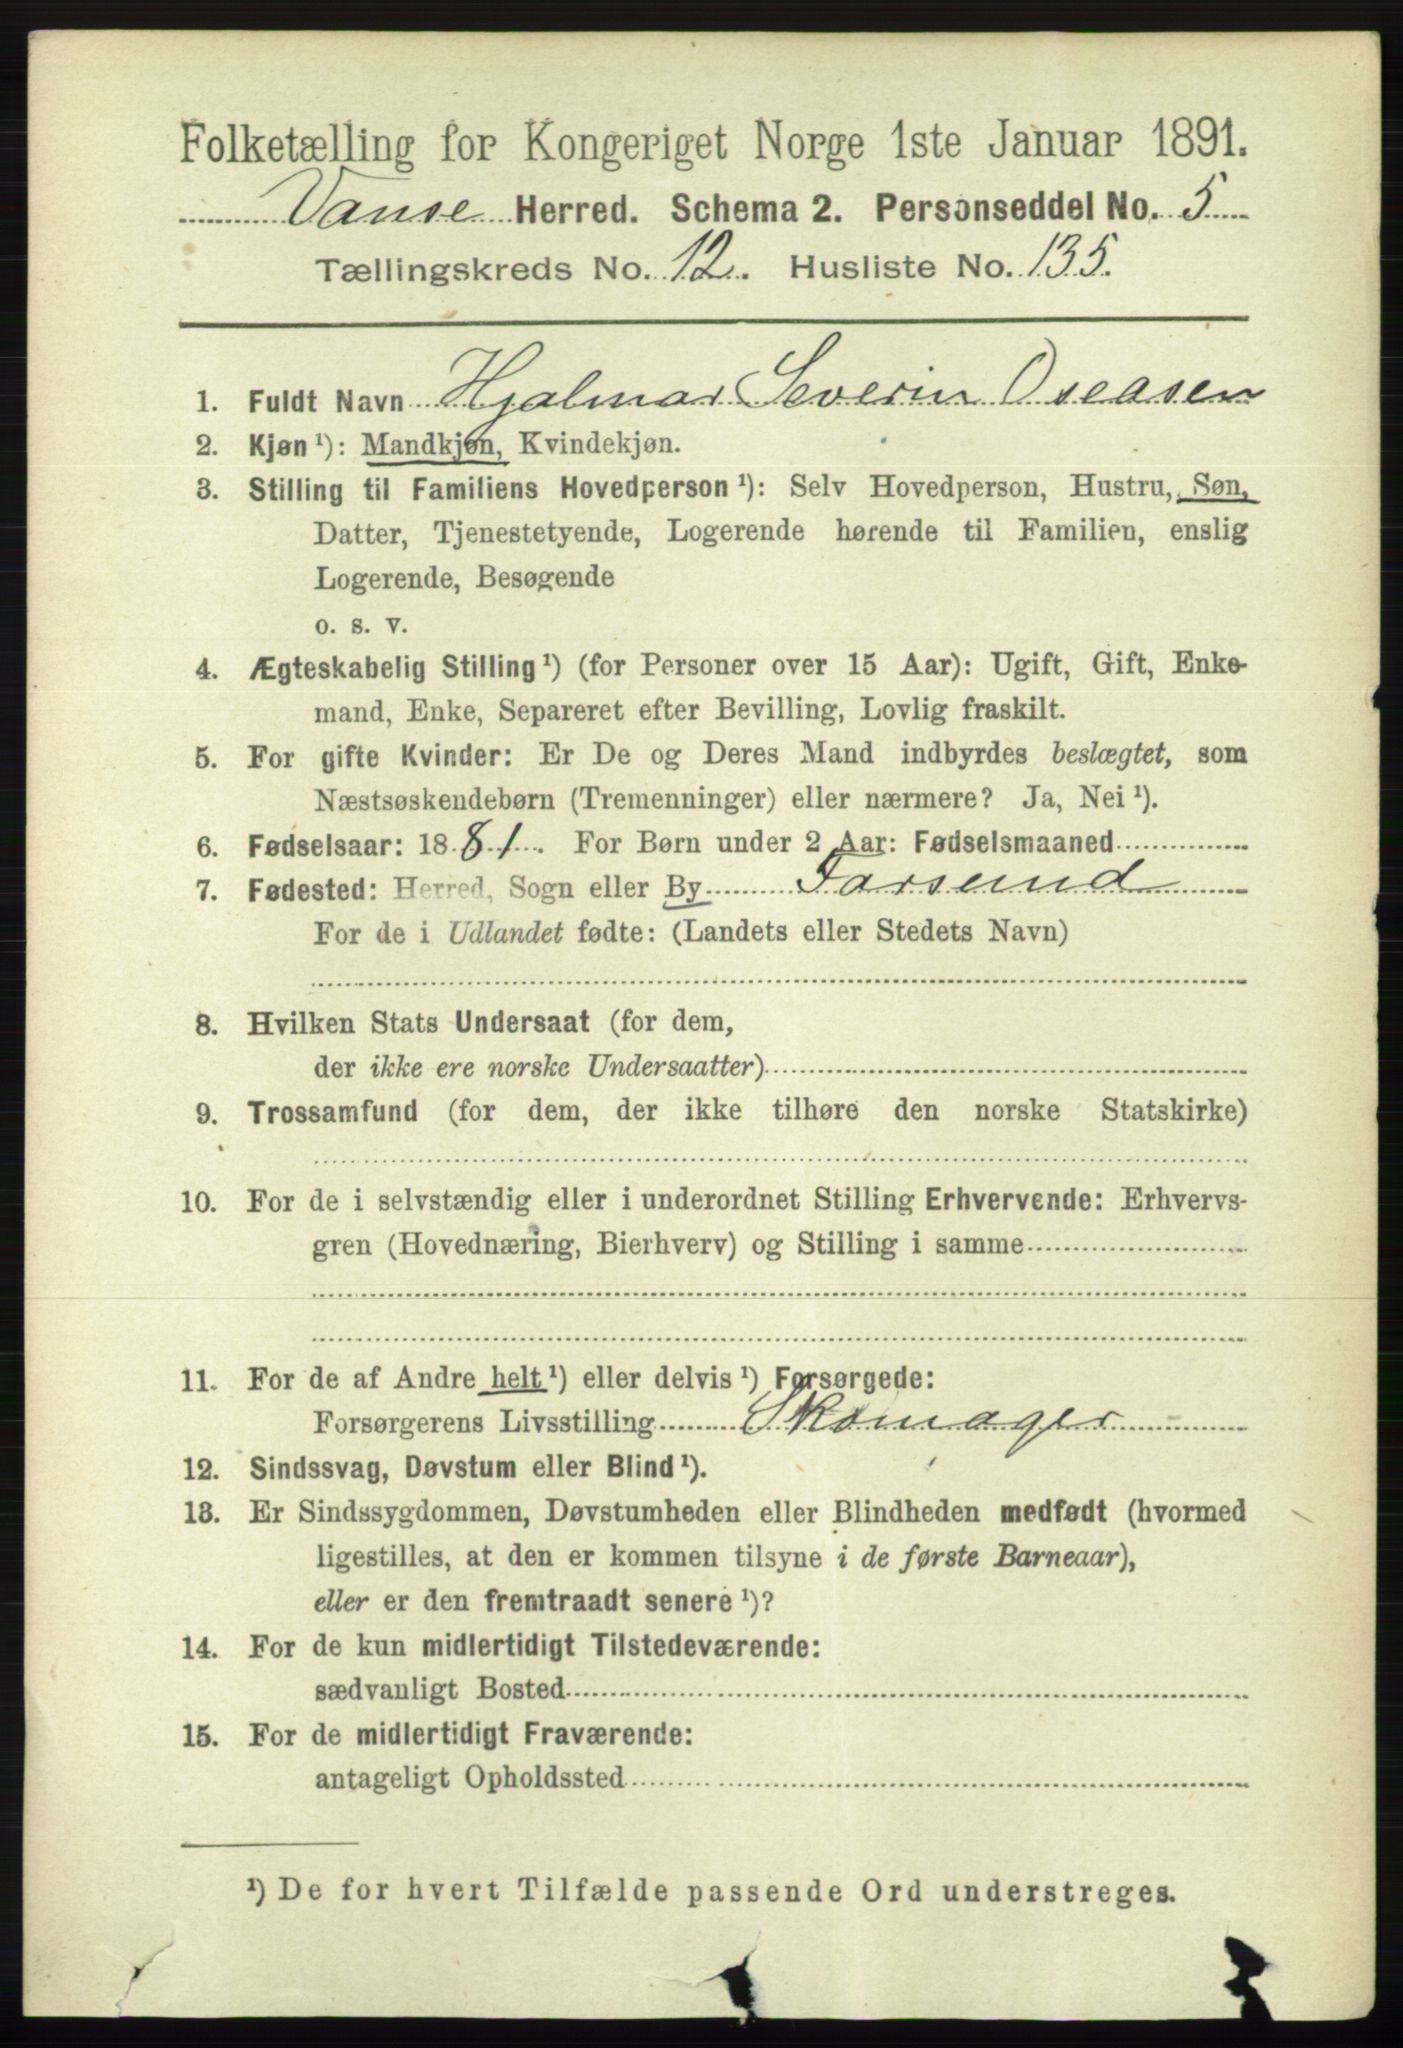 Folketælling for Kongeriget Norge 1ste Januar 1891.
Vanse Herred. Schema 2. Personseddel No. 5
Tællingskreds No. 12. Husliste No. 135.
1. Fuldt Navn Hjalmar Severin Oseasen
2. Kjøn ¹): Mandkjøn, Kvindekjøn.
3. Stilling til Familiens Hovedperson ¹): Selv Hovedperson, Hustru, Søn,
Datter, Tjenestetyende, Logerende hørende til Familien, enslig
Logerende, Besøgende
o. s. v.
4. Ægteskabelig Stilling ¹) (for Personer over 15 Aar): Ugift, Gift, Enke-
mand, Enke, Separeret efter Bevilling, Lovlig fraskilt.
5. For gifte Kvinder: Er De og Deres Mand indbyrdes beslægtet, som
Næstsøskendebørn (Tremenninger) eller nærmere? Ja, Nei ¹).
6. Fødselsaar: 1881. For Børn under 2 Aar: Fødselsmaaned
7. Fødested: Herred, Sogn eller By Farsund
For de i Udlandet fødte: (Landets eller Stedets Navn)
8. Hvilken Stats Undersaat (for dem,
der ikke ere norske Undersaatter)
9. Trossamfund (for dem, der ikke tilhøre den norske Statskirke)
10. For de i selvstændig eller i underordnet Stilling Erhvervende: Erhvervs-
gren (Hovednæring, Bierhverv) og Stilling i samme
11. For de af Andre helt ¹) eller delvis ¹) Forsørgede:
Forsørgerens Livsstilling Skomager
12. Sindssvag, Døvstum eller Blind ¹).
13. Er Sindssygdommen, Døvstumheden eller Blindheden medfødt (hvormed
ligestilles, at den er kommen tilsyne i de første Barneaar),
eller er den fremtraadt senere ¹)?
14. For de kun midlertidigt Tilstedeværende:
sædvanligt Bosted
15. For de midlertidigt Fraværende:
antageligt Opholdssted
¹) De for hvert Tilfælde passende Ord understreges.